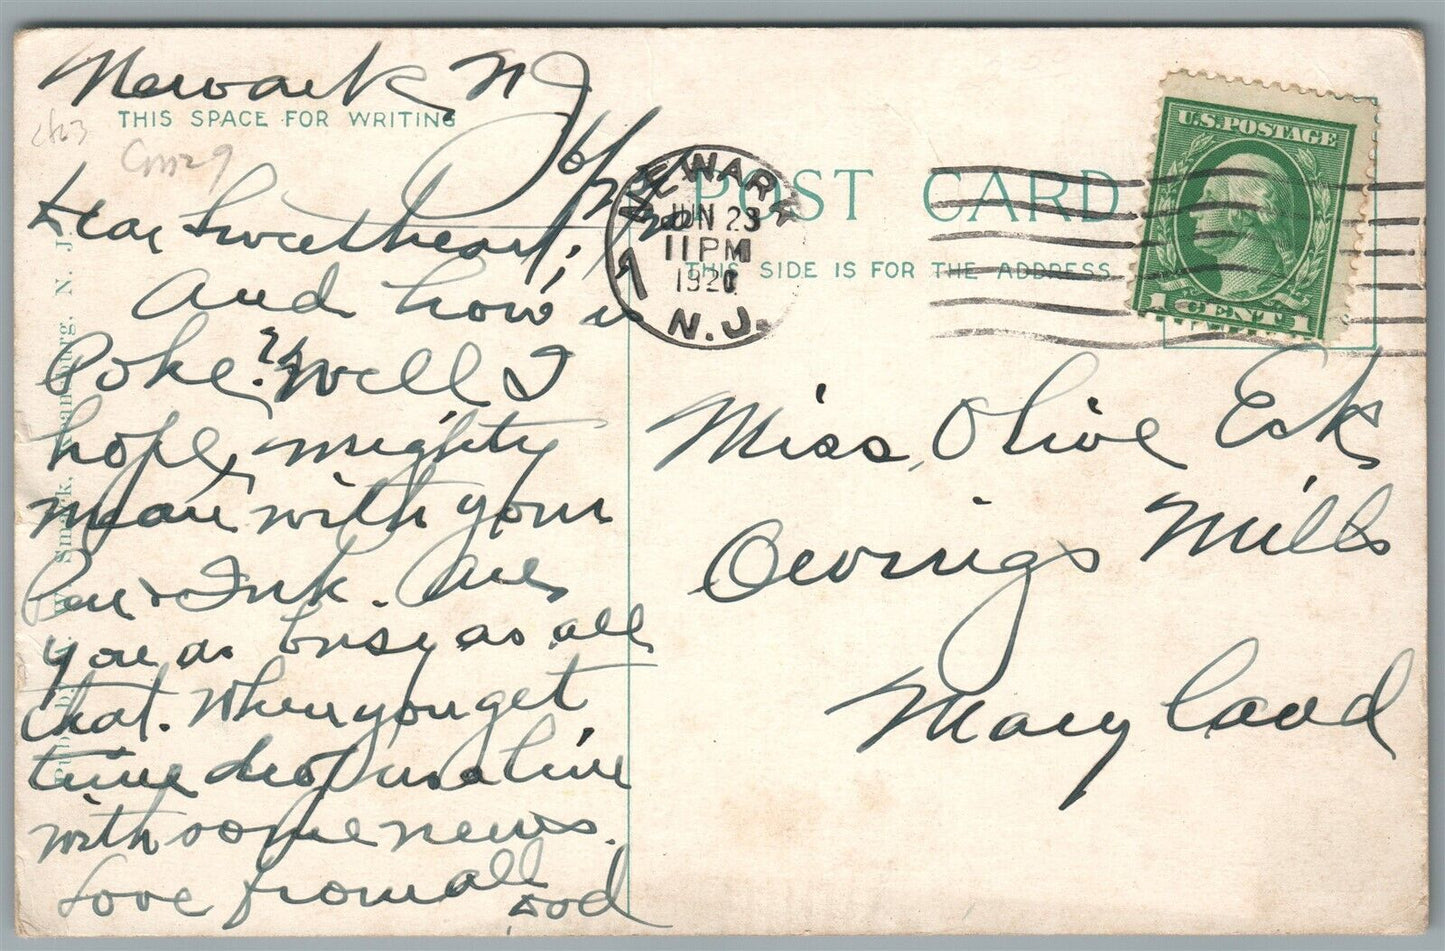 Newark N J
THIS SPACE FOR WRITING
6/23/20
Dear Sweetheart;
And how is
Poke? Well I
hope, mighty
mean with your
Pen & Ink. Are
you as busy as all
that. When you get
time drop us a line
with some news.
Love from all
Dod
POST CARD
THIS SIDE IS FOR THE ADDRESS
NEWARK
JUN 23
11 PM
1920
N.J.
7
U.S. POSTAGE
1 CENT 1
Miss Olive Eck
Owings Mills
Maryland